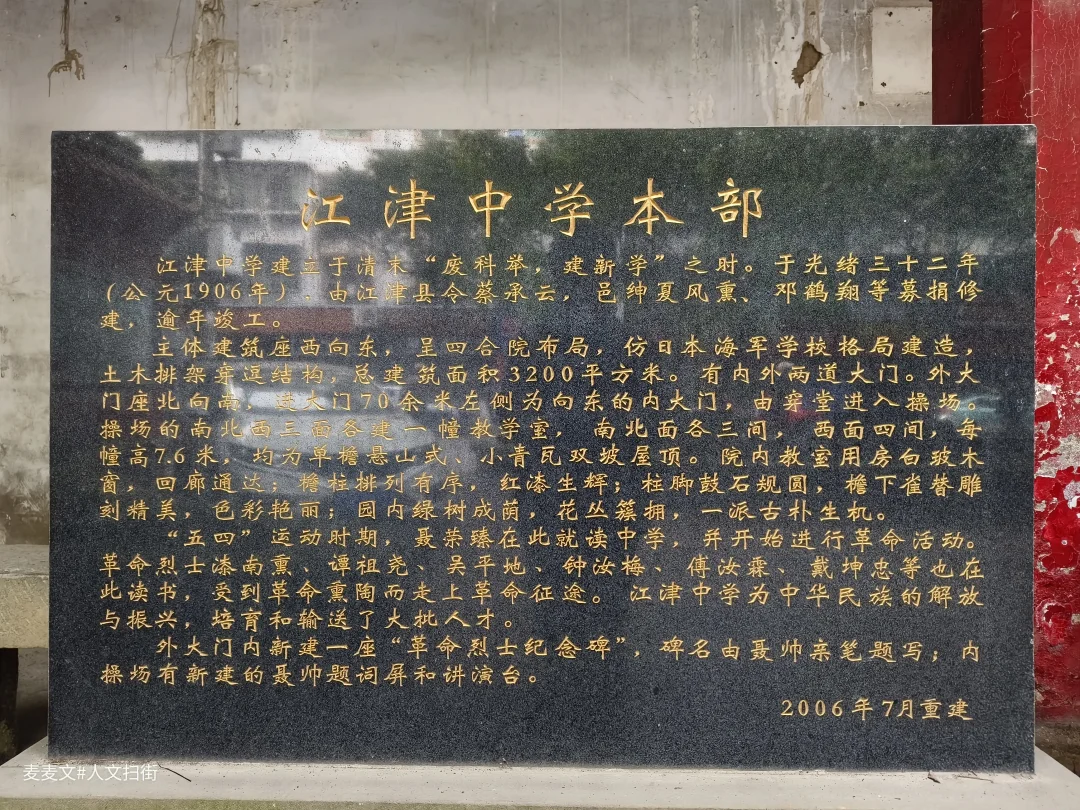 江津中学本部
江津中学建立于清末“废科举，建新学”之时。于光绪三十二年
（公元1906年），由江津县令蔡承云，邑绅夏风熏、邓鹤翔等募捐修
建，逾年竣工。
主体建筑座西向东，呈四合院布局，仿日本海军学校格局建造，
土木排架穿逗结构，总建筑面积3200平方米。有内外两道大门。外大
门座北向南，进大门70余米左侧为向东的内大门，由穿堂进入操场。
操场的南北西三面各建一幢教学室，南北面各三间，西面四间，每
幢高7.6米，均为单檐悬山式、小青瓦双坡屋顶。院内教室用房白玻木
窗，回廊通达；檐柱排列有序，红漆生辉；柱脚鼓石规圆，檐下雀替雕
刻精美，色彩艳丽；园内绿树成荫，花丛簇拥，一派古朴生机。
“五四”运动时期，聂荣臻在此就读中学，并开始进行革命活动。
革命烈士漆南熏、谭祖尧、吴平地、钟汝梅、傅汝霖、戴坤忠等也在
此读书，受到革命熏陶而走上革命征途。江津中学为中华民族的解放
与振兴，培育和输送了大批人才。
外大门内新建一座“革命烈士纪念碑”，碑名由聂帅亲笔题写；内
操场有新建的聂帅题词屏和讲演台。
2006年7月重建
麦麦文#人文扫街